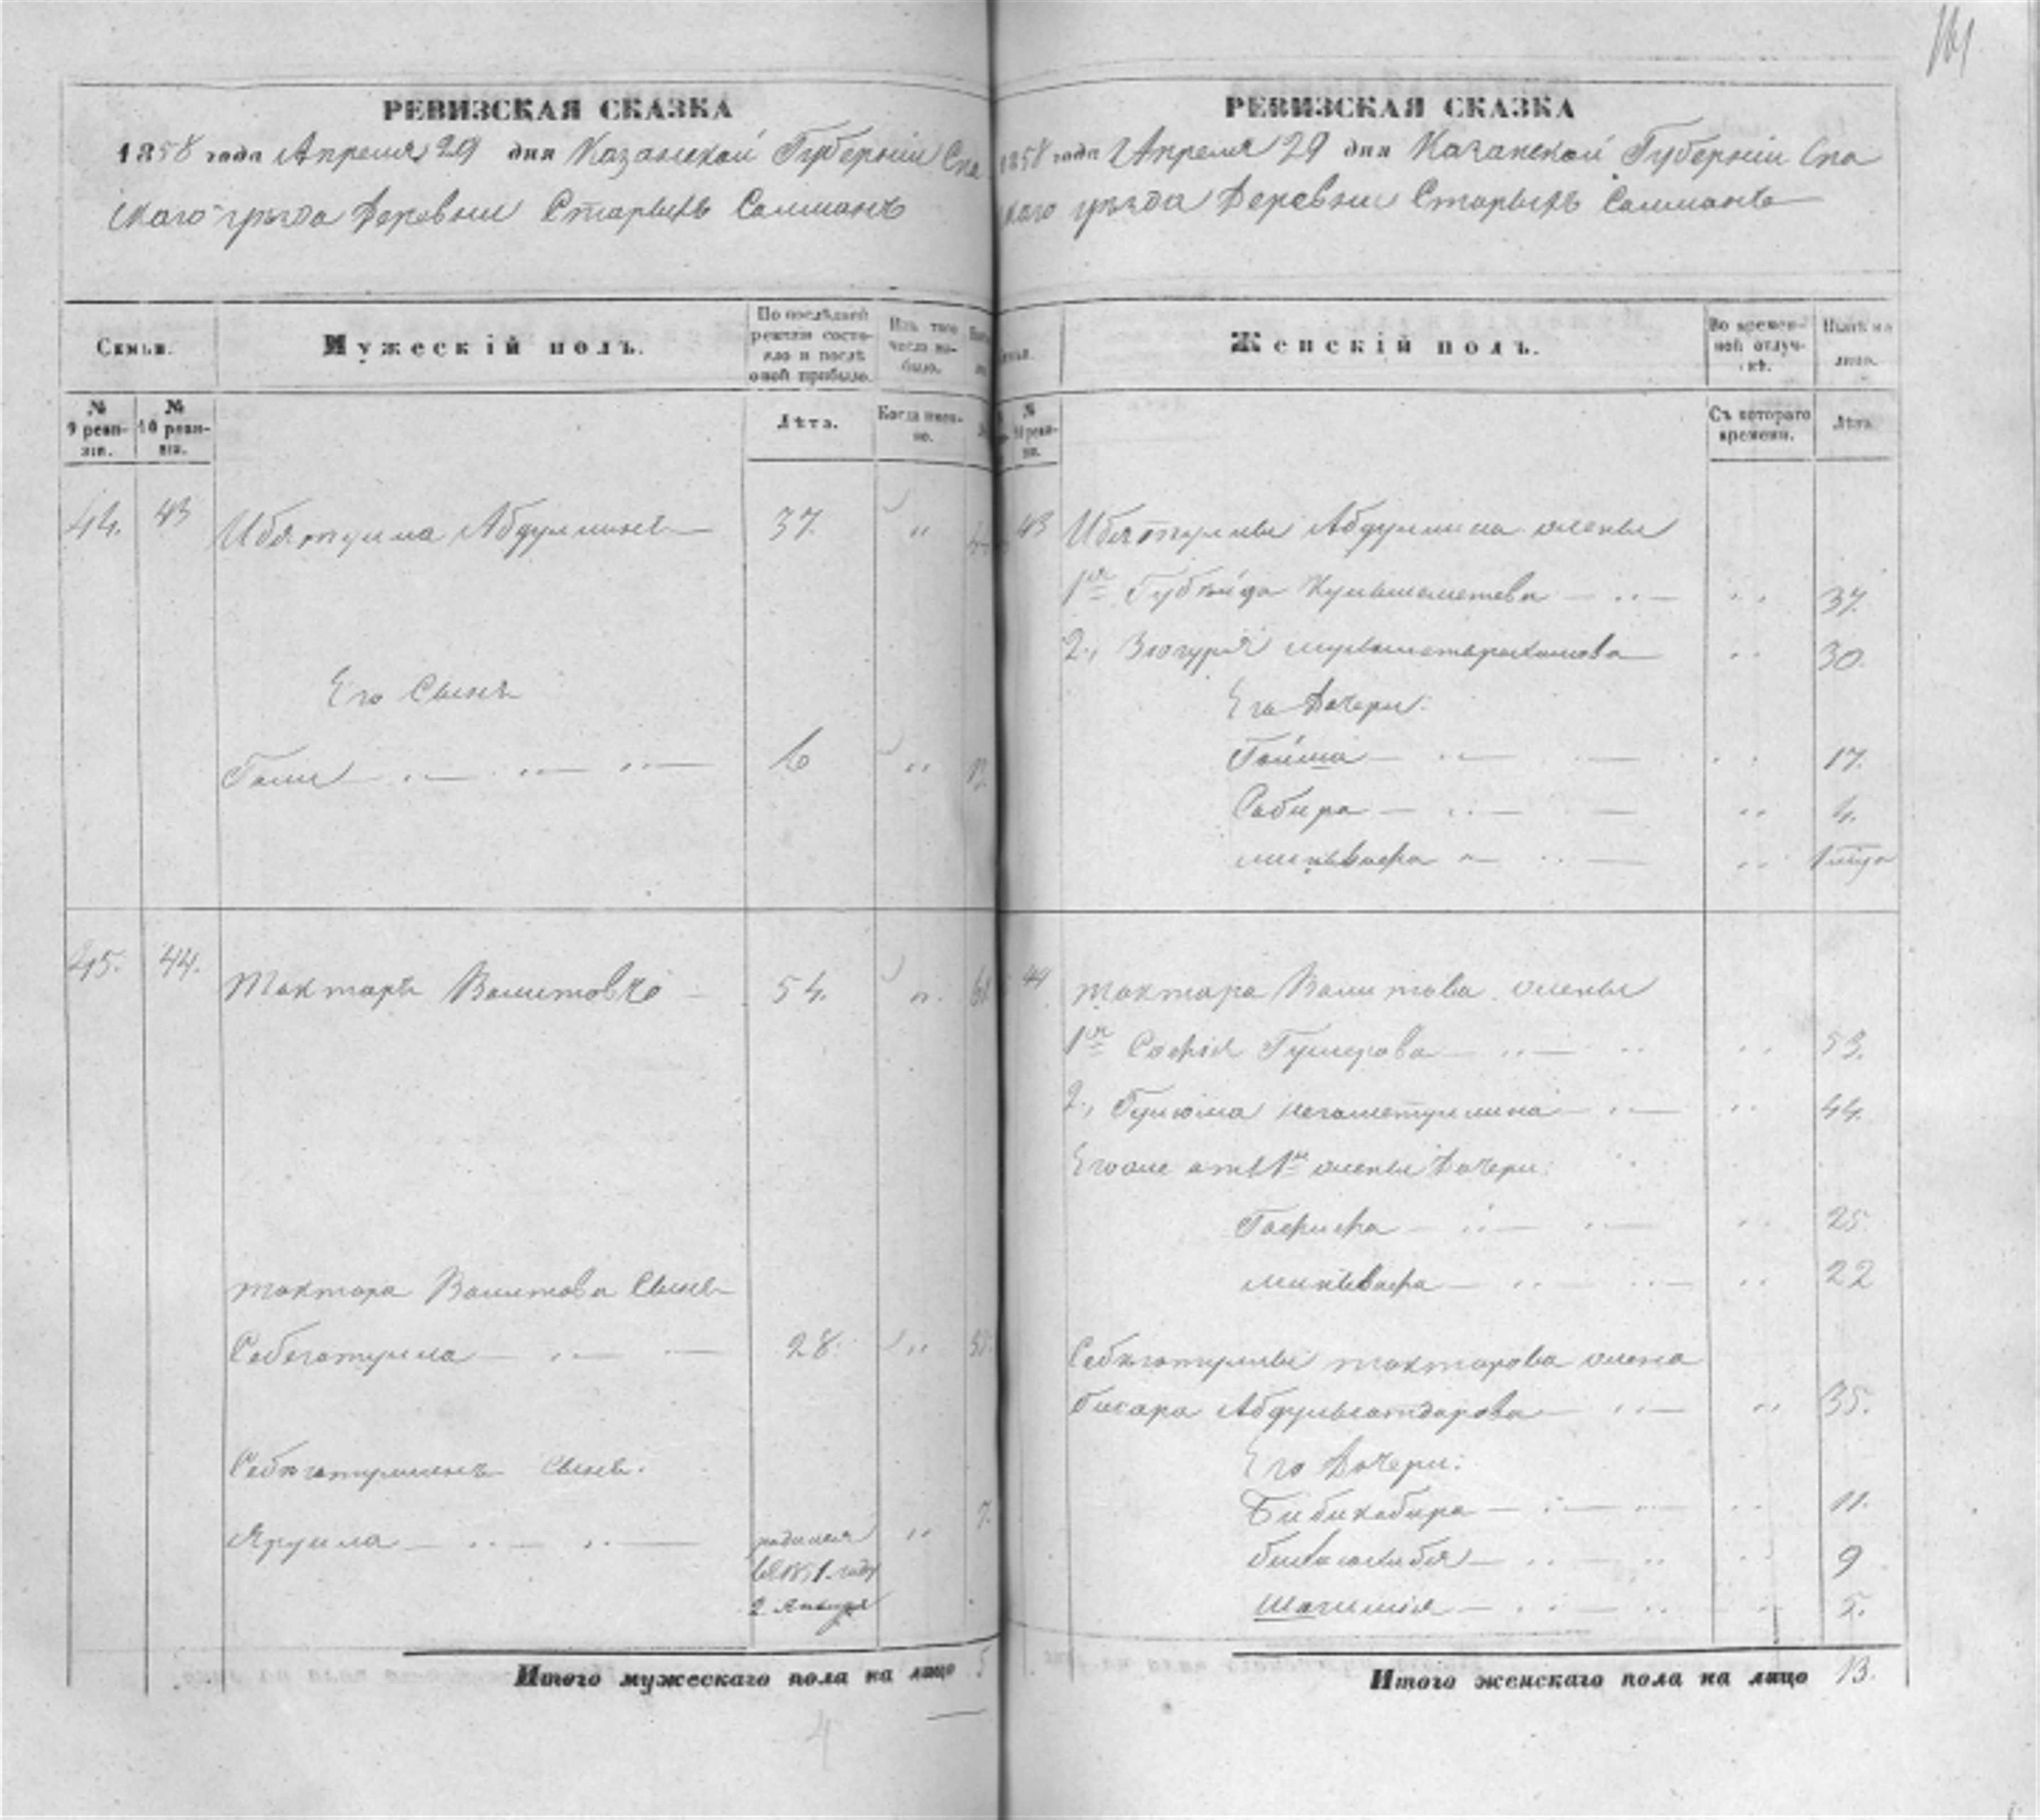 161
РЕВИЗСКАЯ СКАЗКА
1858 года Апреля 29 дня Казанской Губернiи Спа
скаго уѣзда Деревни Старыхъ Салманъ
Семьи.
Мужескiй полъ.
По послѣдней ревизiи состояло и послѣ оной прибыло.
Изъ того числа выбыло.
№ 9 ревизiи.
№ 10 ревизiи.
Лѣта.
Когда именно.
44. 43 Ибятулла Абдуллинъ 37. "
Его Сынъ
Гали 6 "
45. 44. Мактаръ Валитовъ 54. "
Мактара Валитова Сынъ
Себегатулла 28. "
Себѣгатуллинъ Сынъ.
Ярулла родился "
въ 1851 году
2 Января
Итого мужескаго пола на лицо 5
4
РЕВИЗСКАЯ СКАЗКА
1858 года Апреля 29 дня Казанской Губернiи Спа
скаго уѣзда Деревни Старыхъ Салманъ
Женскiй полъ.
Во временной отлучкѣ.
Нынѣ на лицо.
№ 10 ревизiи.
Съ котораго времени.
Лѣта.
43 Ибятуллы Абдуллина жены
1я Губѣйда Кульмаметева " 37.
2., Зюгуря " 30.
Его Дочери:
Гайша " 17.
Сабира " 4.
Миньвафа "
44 Мактара Валитова жены
1я Софiя Гумерова " 53.
2., Гулюма Негаметуллина " 44.
Его же отъ 1й жены Дочери:
Гафифа " 25.
Миньвафа " 22
Себѣгатуллы Мактарова жена
Бисара " 35.
Его Дочери:
Бибикабира " 11.
" 9
" 5.
Итого женскаго пола на лицо 13.